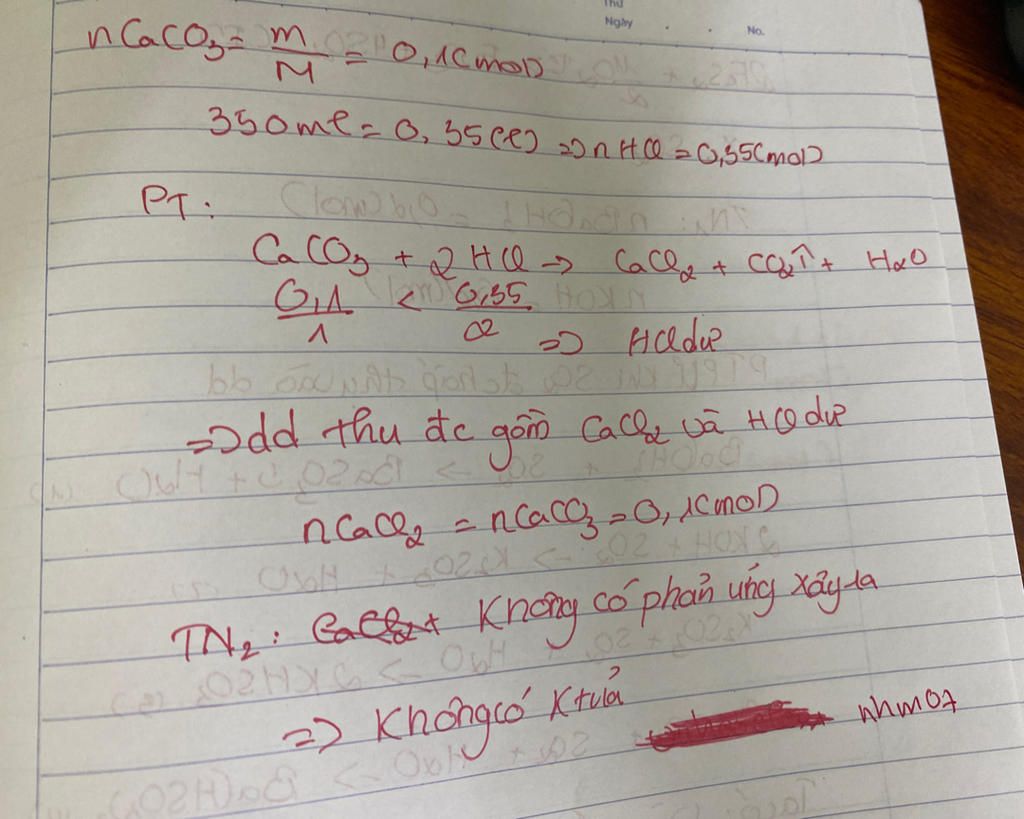 Thứ
Ngày . . No.
nCaCO3 = m/M = 0,1(mol)
350ml = 0,35(l) => nHCl = 0,35(mol)
PT:
CaCO3 + 2HCl -> CaCl2 + CO2↑ + H2O
0,1/1 < 0,35/2 => HCl dư
=> dd thu đc gồm CaCl2 và HCl dư
nCaCl2 = nCaCO3 = 0,1(mol)
TN2: CaCl2+ Không có phản ứng xảy ra
=> Không có Ktủa nhm07